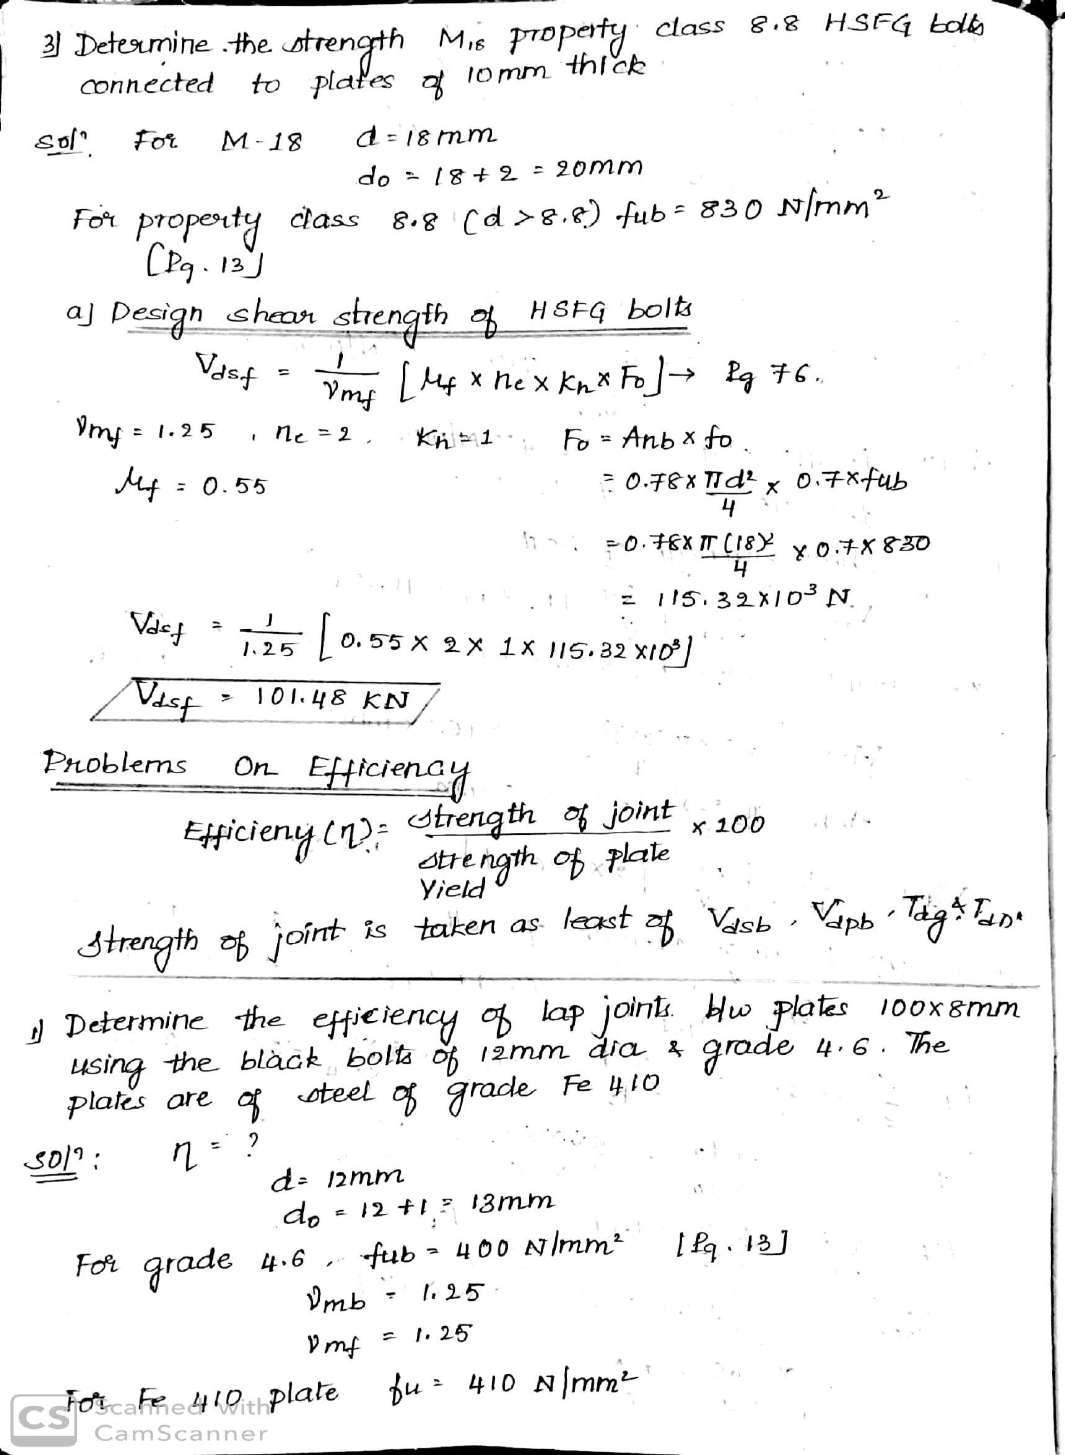 3) Determine the strength M18 property class 8.8 HSFG bolts
connected to plates of 10mm thick
Solⁿ. For M-18 d = 18mm
do = 18+2 = 20mm
For property class 8.8 (d >8.8) fub = 830 N/mm²
[Pg. 13]
a) Design shear strength of HSFG bolts
Vdsf = 1/γmf [μf x ne x Kh x Fo] → Pg 76.
γmf = 1.25 , ne = 2 , Kh = 1 Fo = Anb x fo
μf = 0.55 = 0.78 x πd²/4 x 0.7xfub
= 0.78x π(18)²/4 x 0.7x 830
= 115.32x10³ N.
Vdsf = 1/1.25 [0.55 x 2 x 1x 115.32 x10³]
Vdsf = 101.48 KN
Problems On Efficiency
Efficieny (η) = strength of joint / strength of plate x 100
Yield
Strength of joint is taken as least of Vdsb , Vdpb , Tdg & Tdn.
1) Determine the efficiency of lap joints b/w plates 100x8mm
using the black bolts of 12mm dia & grade 4.6. The
plates are of steel of grade Fe 410
Solⁿ: η = ?
d = 12mm
do = 12 +1 = 13mm
For grade 4.6 , fub = 400 N/mm² [Pg. 13]
γmb = 1.25
γmf = 1.25
For Fe 410 plate fu = 410 N/mm²
CS Scanned with
CamScanner